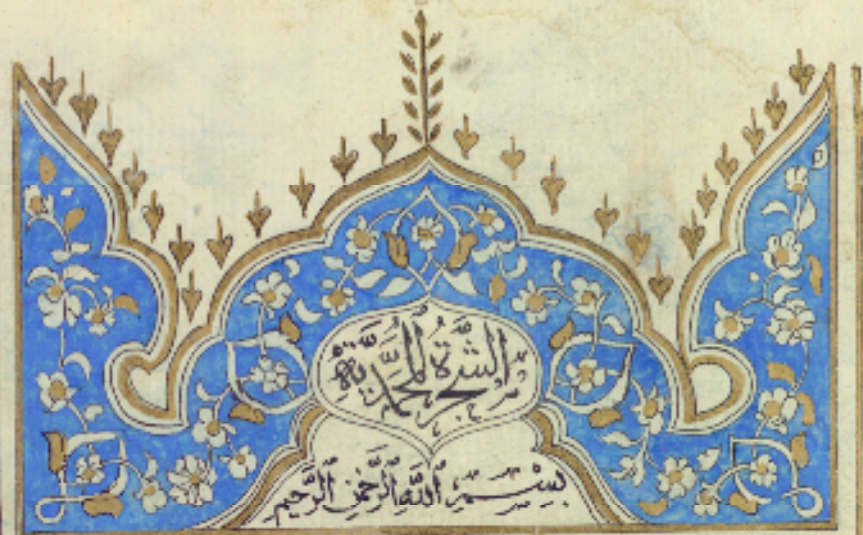 الشَّجَرَةُ الْمُحَمَّدِيَّةِ
بِسْمِ ٱللَّهِ ٱلرَّحْمٰنِ ٱلرَّحِيمِ